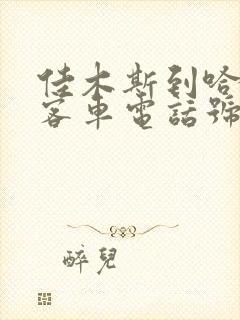 佳木斯到哈
客車電話號
醉兒